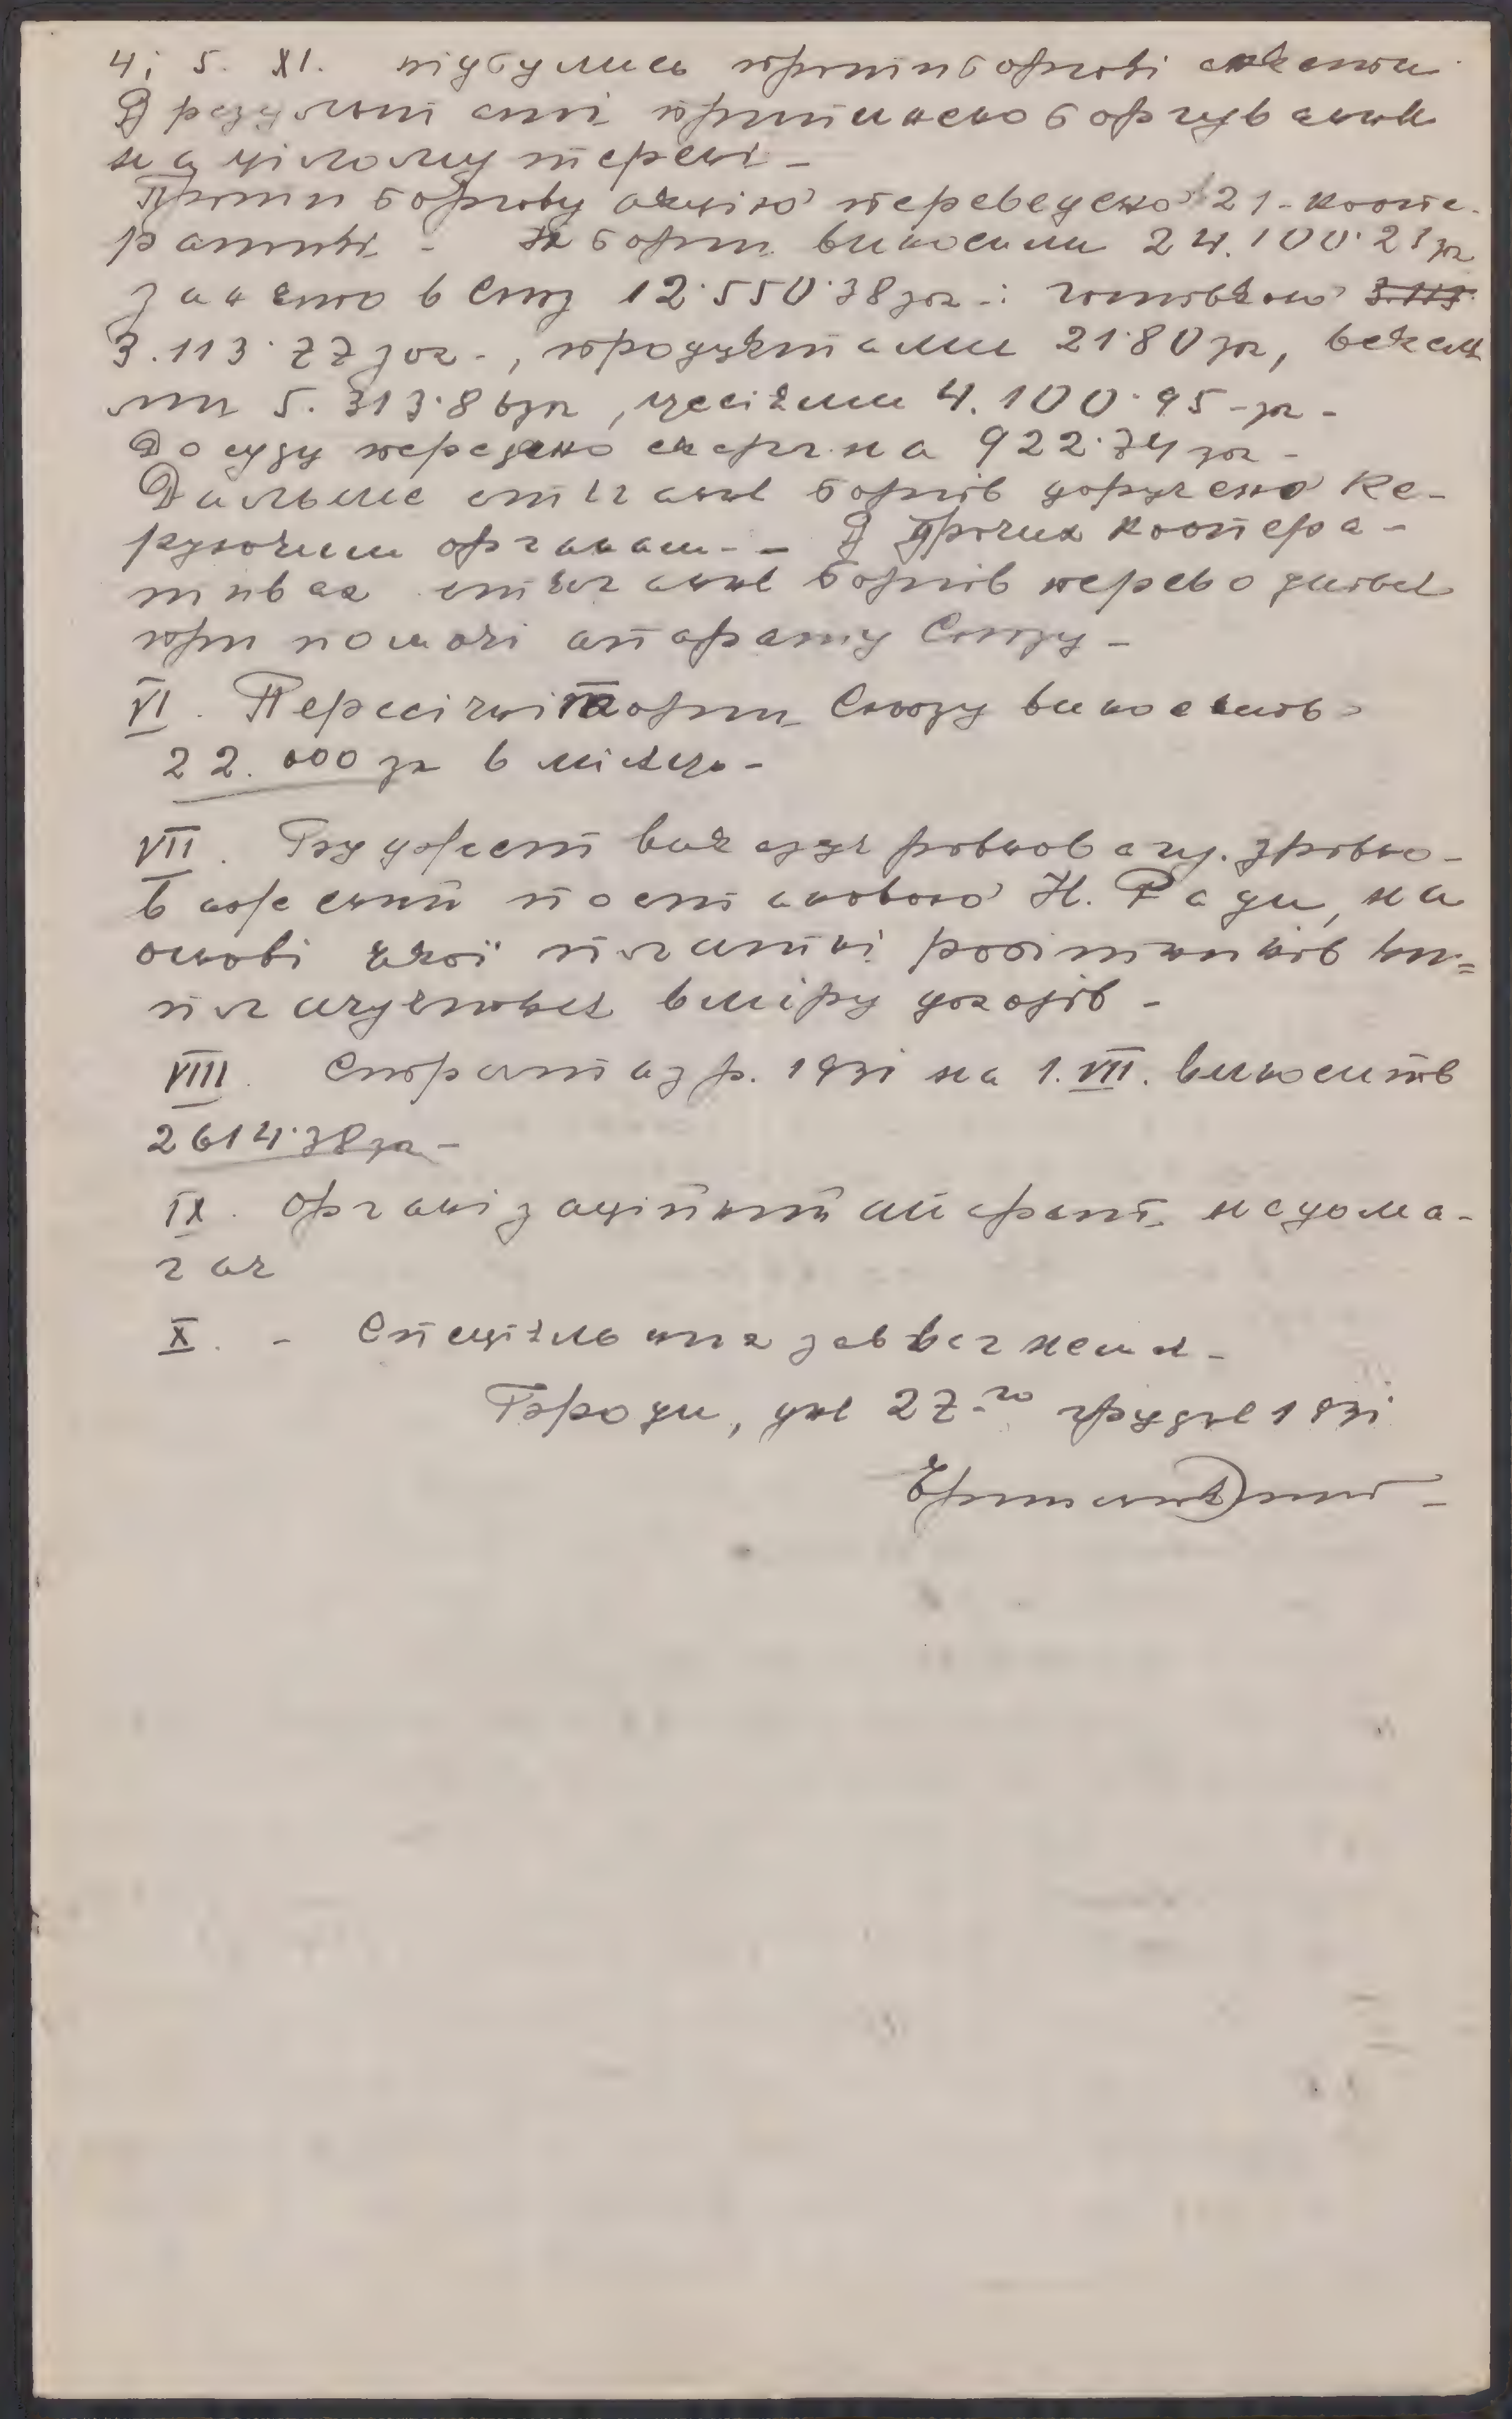 4 і 5. XI. відбулись протиборгові
В результаті припинено боргування
на цілому терені –
Протиборгову акцію переведено 21 – коопе-
ративі – борги виносили 24.100·21 зл
занято в Союз 12·550·38 зл – : готівкою 3.113
3.113·77 зол –, продуктами 21·80 зл, векселя
ми 5.313·86 зл, цесіями 4.100·95 – зл –
До суду передано скарг на 922·74 зл –
Дальше стягання боргів доручено Ке-
руючим органам – – В прочих коопера-
тивах стягання боргів переводилось
при помочі апарату Союзу –
VI. Пересічні торги Союзу виносять
22.000 зл в місяць –
VII. Буджет виказує рівновагу. зрівно-
важений постановою Н. Ради, на
основі якої платні робітників ви=
плачуються в міру доходів –
VIII. Страта з р. 1931 на 1. VII. виносить
2614·38 зл –
IX. Організаційний апарат недома-
гає
X. – Спеціяльних завваг нема –
Броди, дня 27-го грудня 1931